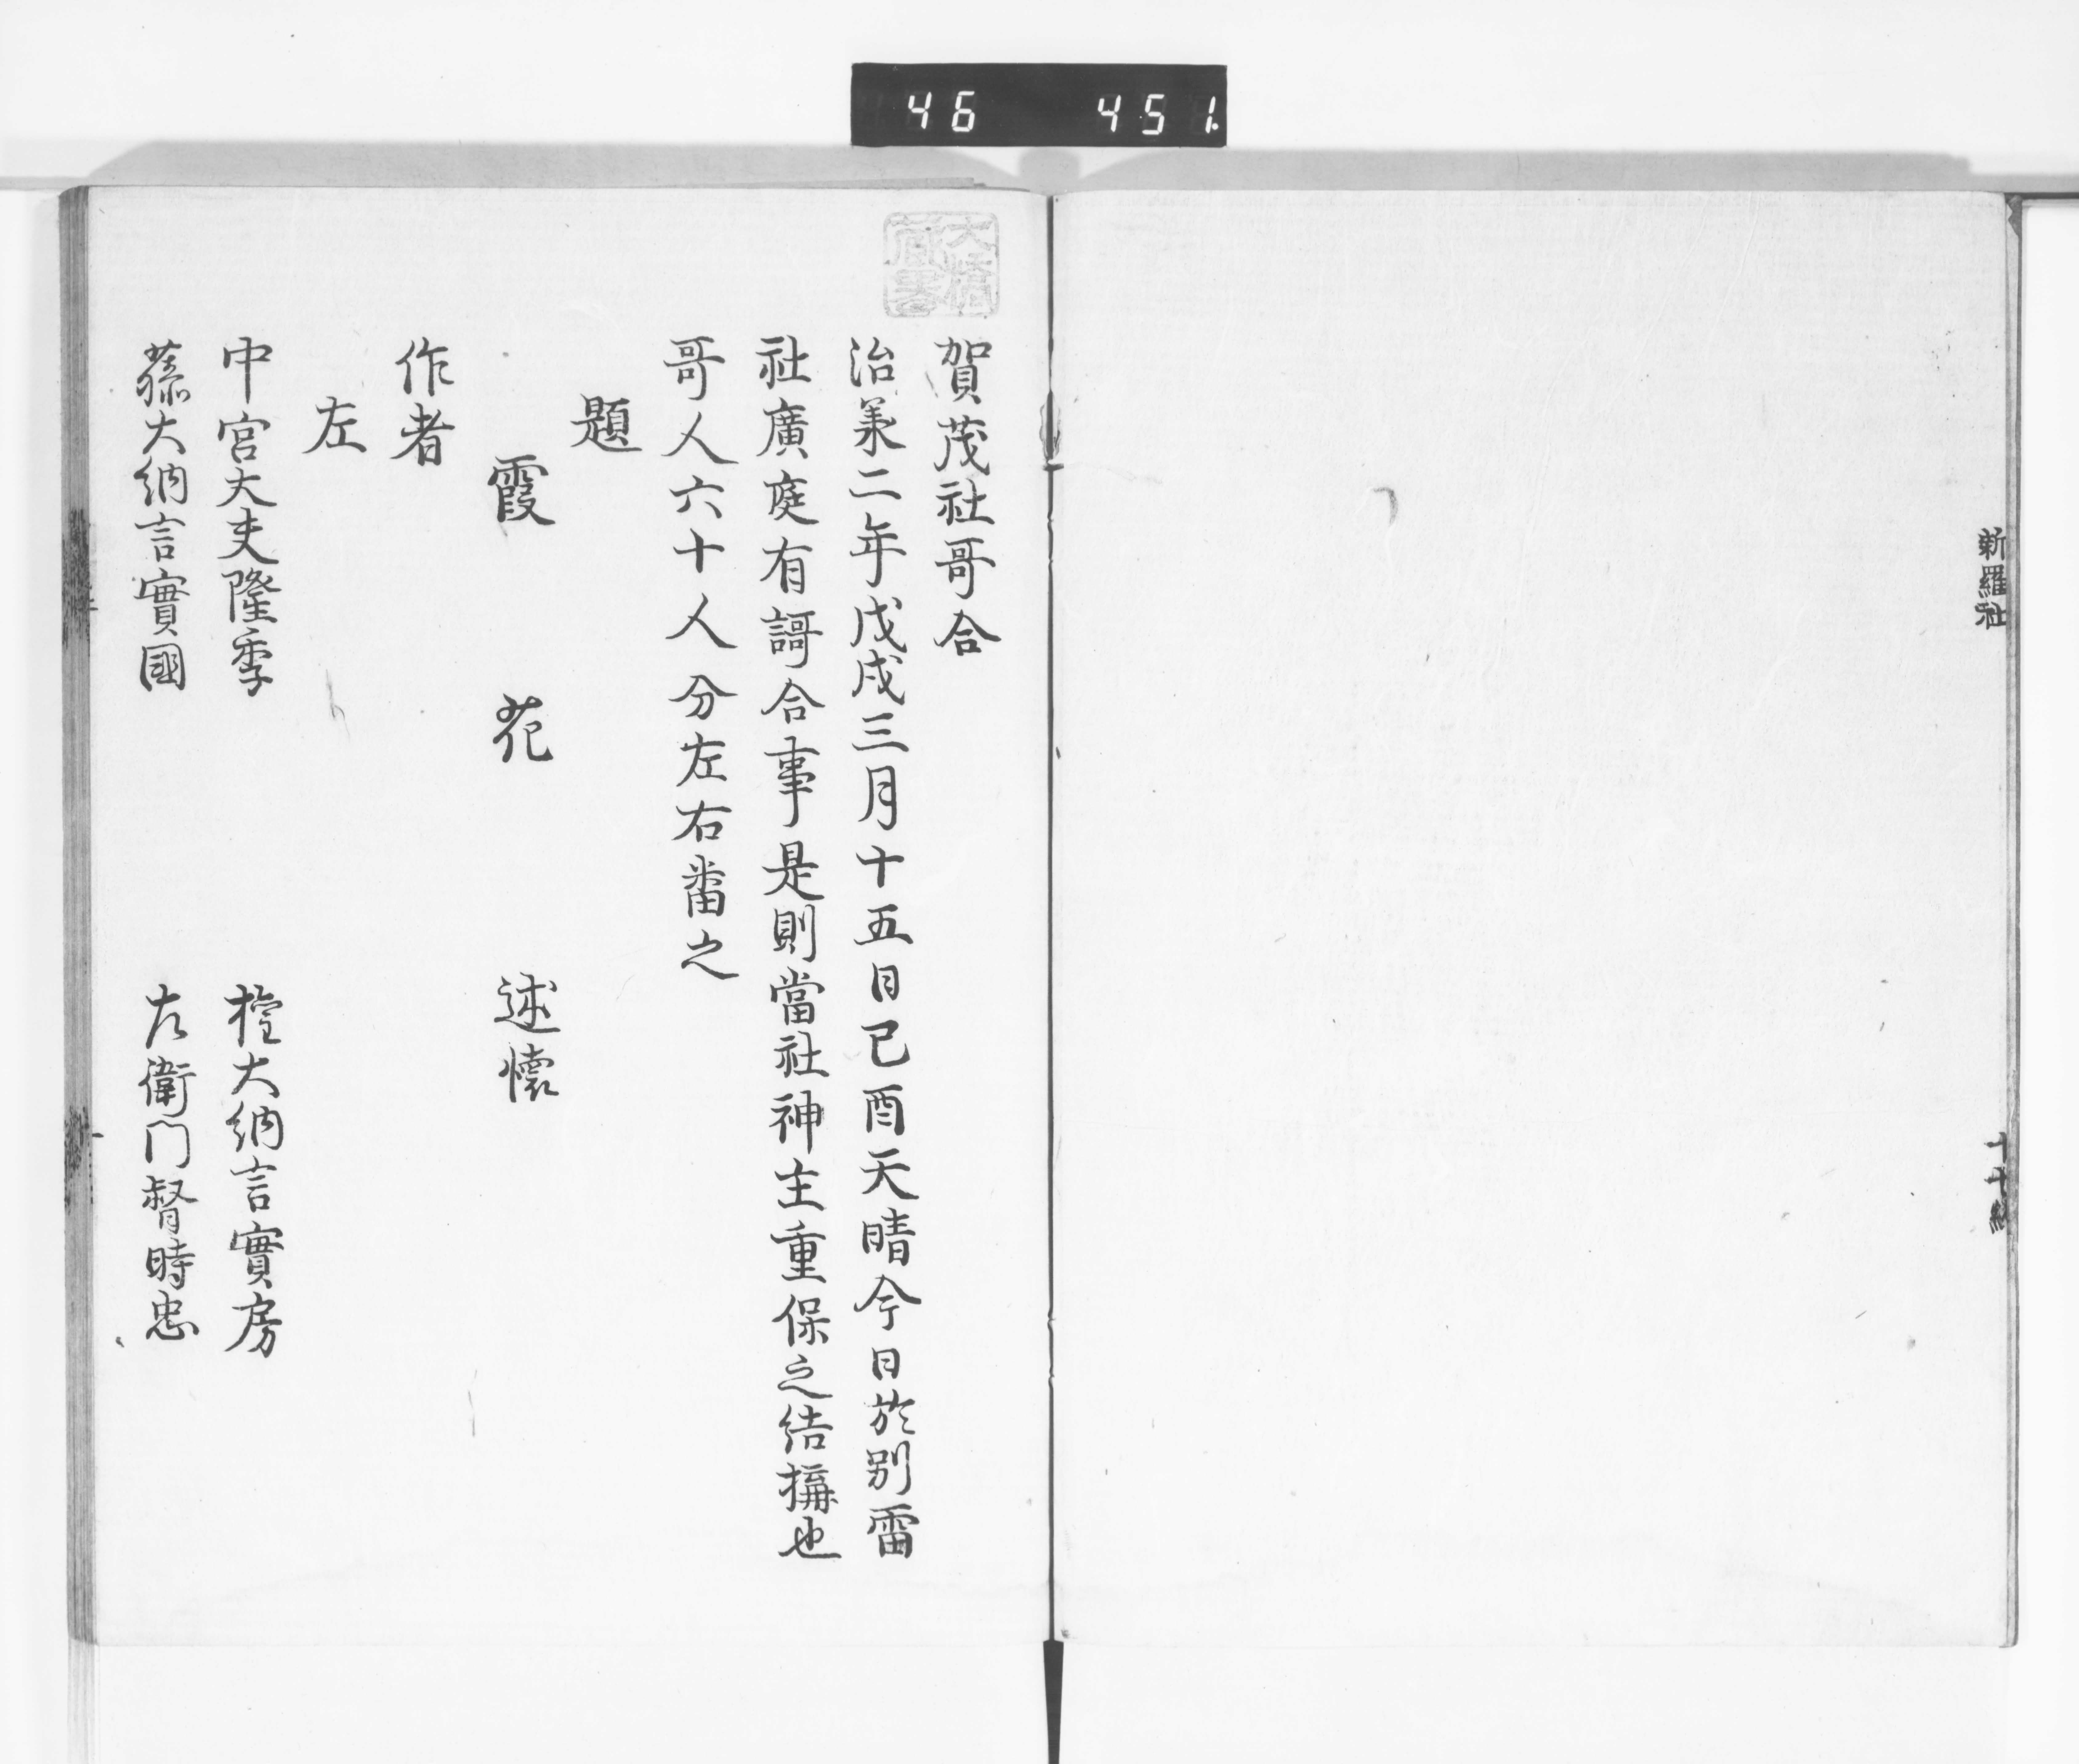 46 451
新羅社
大橋
蔵書
賀茂社哥合
治承二年戊戌三月十五日己酉天晴今日於別雷
社廣庭有謌合事是則當社神主重保之結搆也
哥人六十人分左右番之
題
霞 花 述懐
作者
左
中宮大夫隆季 権大納言實房
藤大納言實國 左衛門督時忠